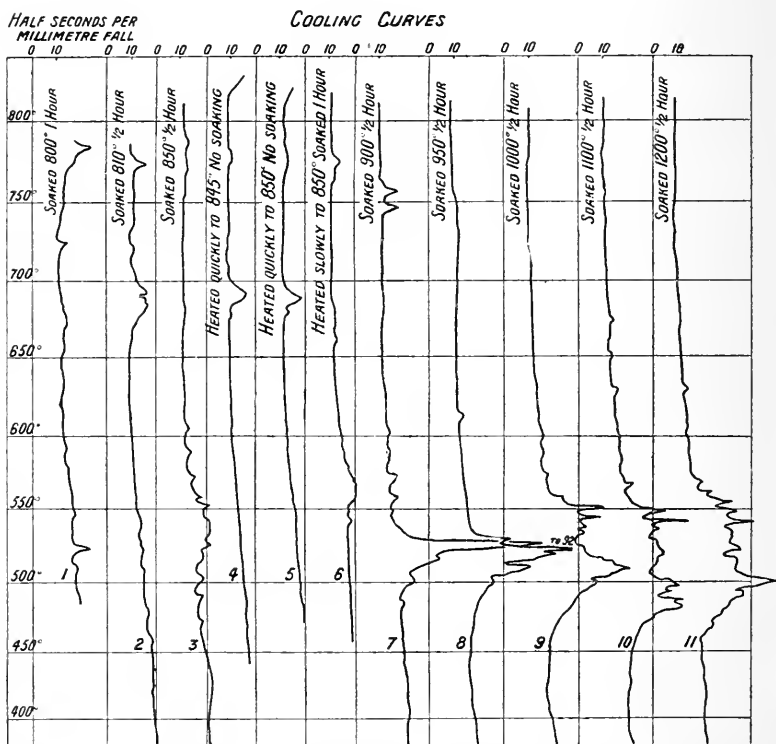 HALF SECONDS PER
MILLIMETRE FALL
COOLING CURVES
0 10 0 10 0 10 0 10 0 10 0 10 0 10 0 10 0 10 0 10 0 10
800°
750°
700°
650°
600°
550°
500°
450°
400°
SOAKED 800° 1 HOUR
SOAKED 810° 1/2 HOUR
SOAKED 850° 1/2 HOUR
HEATED QUICKLY TO 845° NO SOAKING
HEATED QUICKLY TO 850° NO SOAKING
HEATED SLOWLY TO 850° SOAKED 1 HOUR
SOAKED 900° 1/2 HOUR
SOAKED 950° 1/2 HOUR
SOAKED 1000° 1/2 HOUR
SOAKED 1100° 1/2 HOUR
SOAKED 1200° 1/2 HOUR
TO 92
1
2
3
4
5
6
7
8
9
10
11